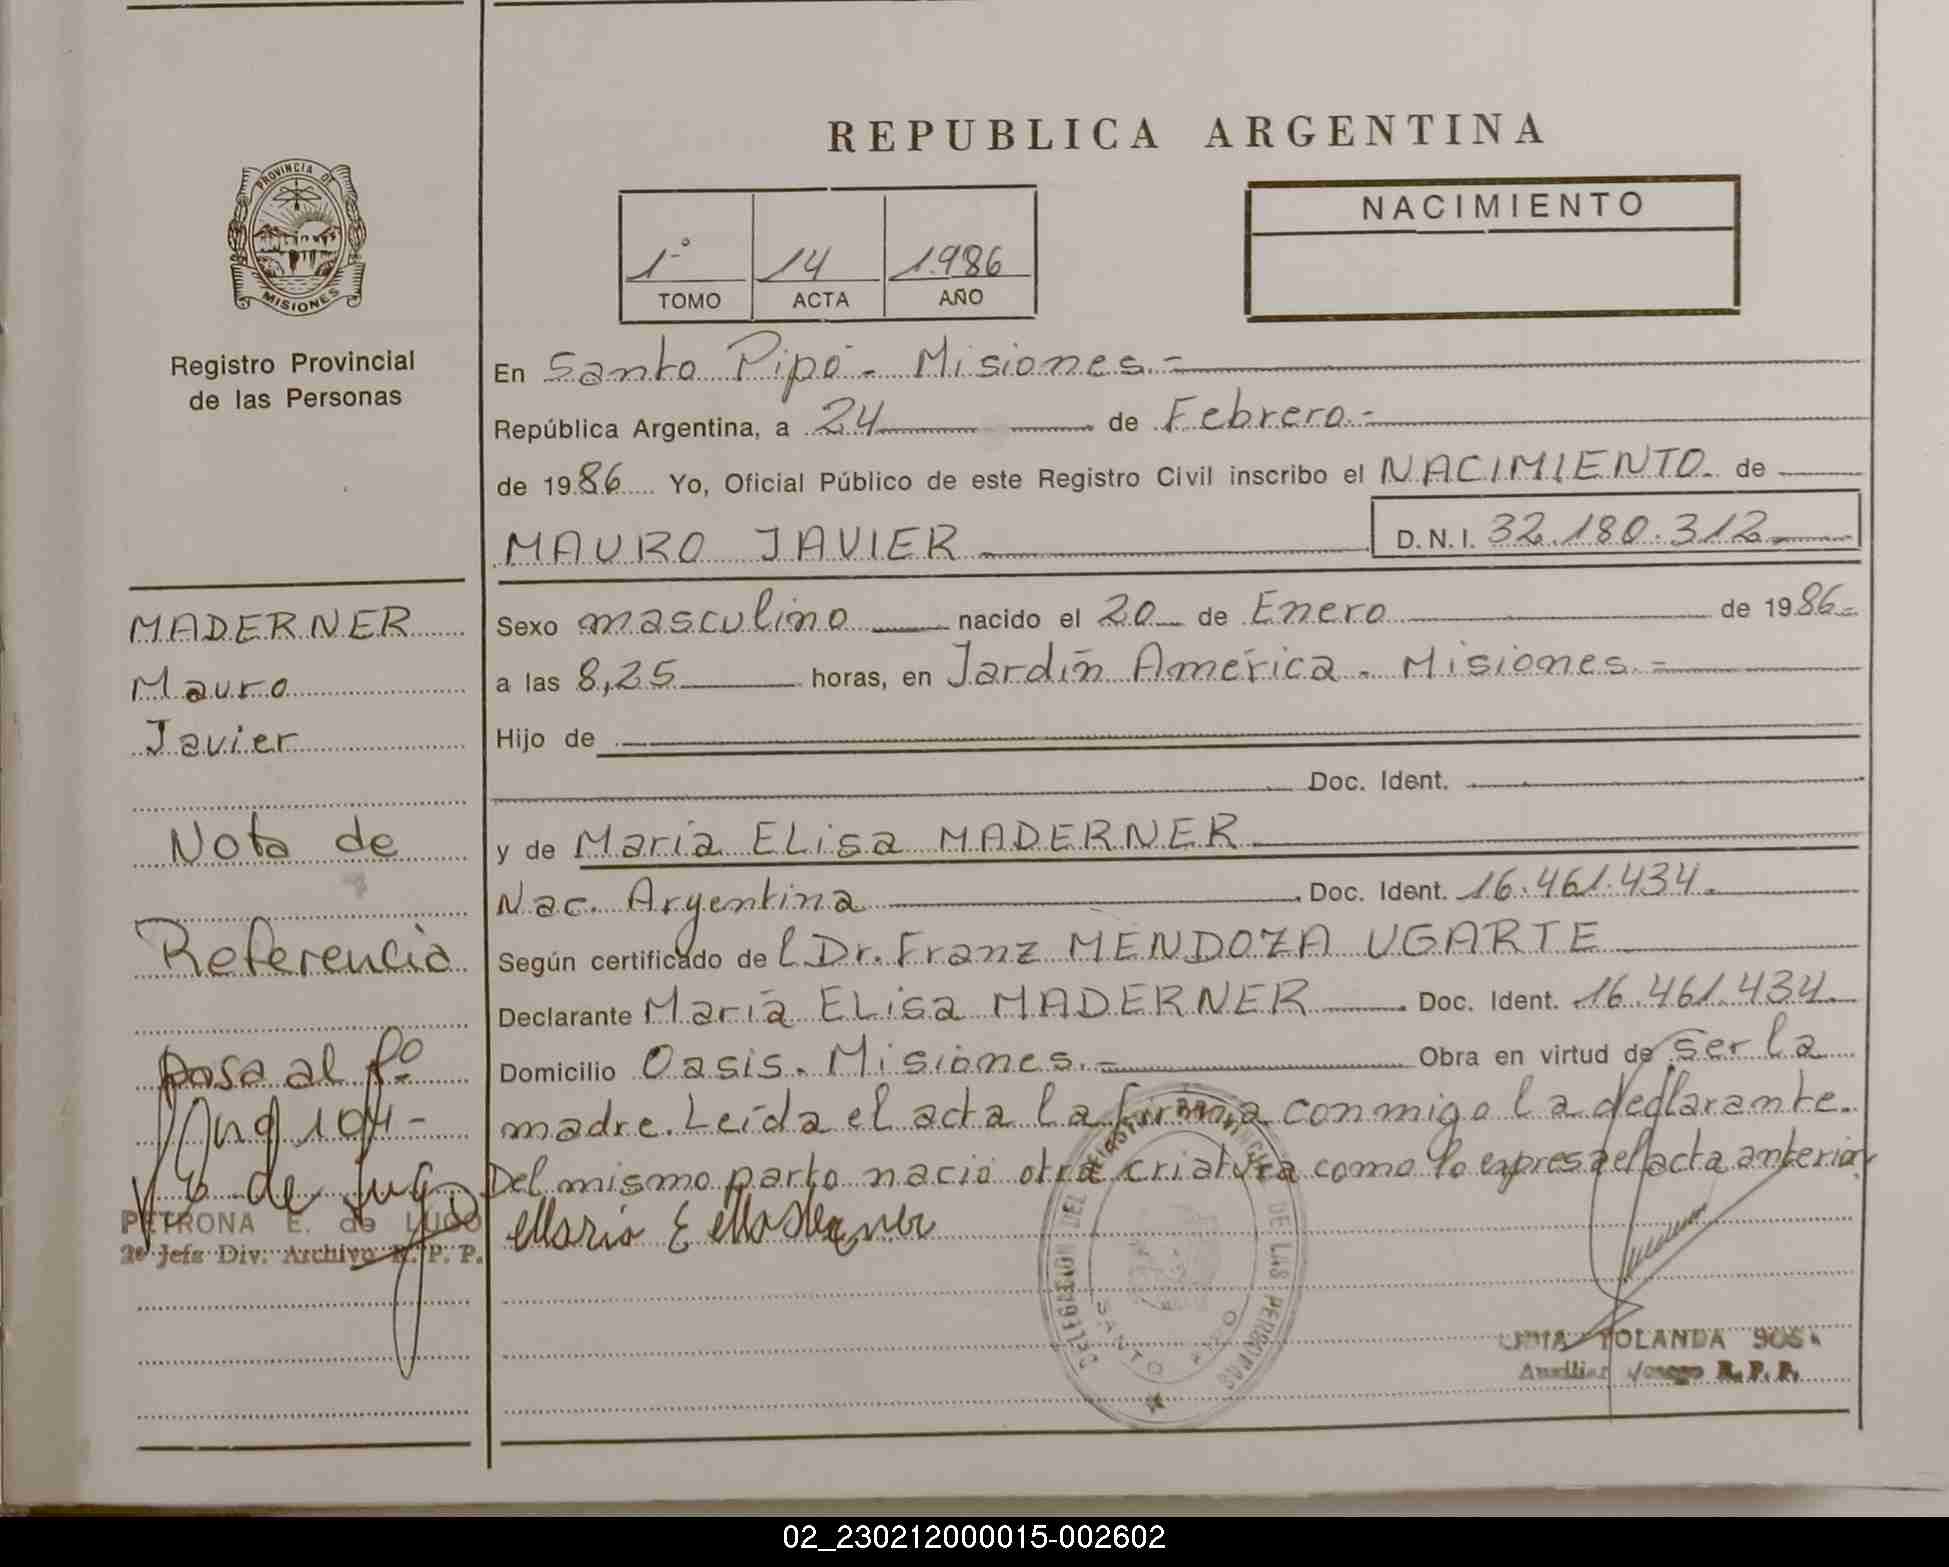 REPUBLICA ARGENTINA
PROVINCIA DE
MISIONES
Registro Provincial
de las Personas
1º 14 1.986
TOMO ACTA AÑO
NACIMIENTO
En Santo Pipó - Misiones.-
República Argentina, a 24 de Febrero.-
de 1986 Yo, Oficial Público de este Registro Civil inscribo el NACIMIENTO de
MAURO JAVIER D.N.I. 32.180.312.
MADERNER
Mauro
Javier
Sexo masculino nacido el 20 de Enero de 1986.-
a las 8,25 horas, en Jardín América. Misiones.-
Hijo de
Doc. Ident.
y de María ELisa MADERNER
Nac. Argentina Doc. Ident. 16.461.434.
Según certificado del Dr. Franz MENDOZA UGARTE
Declarante María ELisa MADERNER Doc. Ident. 16.461.434.
Domicilio Oasis. Misiones.- Obra en virtud de ser la
madre. Leída el acta la firma conmigo la declarante.
Del mismo parto nació otra criatura como lo expresa el acta anterior
Maria E Maderner
Nota de
Referencia
pasa al fº
104-
PETRONA E. de LUGO
2º Jefe Div. Archivo R. P. P.
DELEGACION DEL REGISTRO PROVINCIAL DE LAS PERSONAS
SANTO PIPO
YOLANDA
Auxiliar R. P. P.
02_230212000015-002602